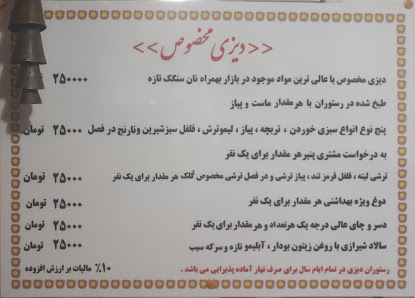 <<دیزی مخصوص>>
دیزی مخصوص با عالی ترین مواد موجود در بازار بهمراه نان سنگک تازه ۲۵۰۰۰۰
طبخ شده در رستوران با هر مقدار ماست و پیاز
پنج نوع انواع سبزی خوردن ، تربچه ، پیاز ، لیموترش ، فلفل سبزشیرین ونارنج در فصل ۲۵۰۰۰ تومان
به درخواست مشتری پنیر هر مقدار برای یک نفر
ترشی لیته ، فلفل قرمز تند ، پیاز ترشی و در فصل ترشی مخصوص کَلَک هر مقدار برای یک نفر ۲۵۰۰۰ تومان
دوغ ویژه بهداشتی هر مقدار برای یک نفر ۲۵۰۰۰ تومان
دسر و چای عالی درجه یک هرتعداد و هر مقدار برای یک نفر ۲۵۰۰۰ تومان
سالاد شیرازی با روغن زیتون بودار ، آبلیمو تازه و سرکه سیب ۲۵۰۰۰ تومان
رستوران دیزی در تمام ایام سال برای صرف نهار آماده پذیرایی می باشد . ۱۰٪ مالیات بر ارزش افزوده